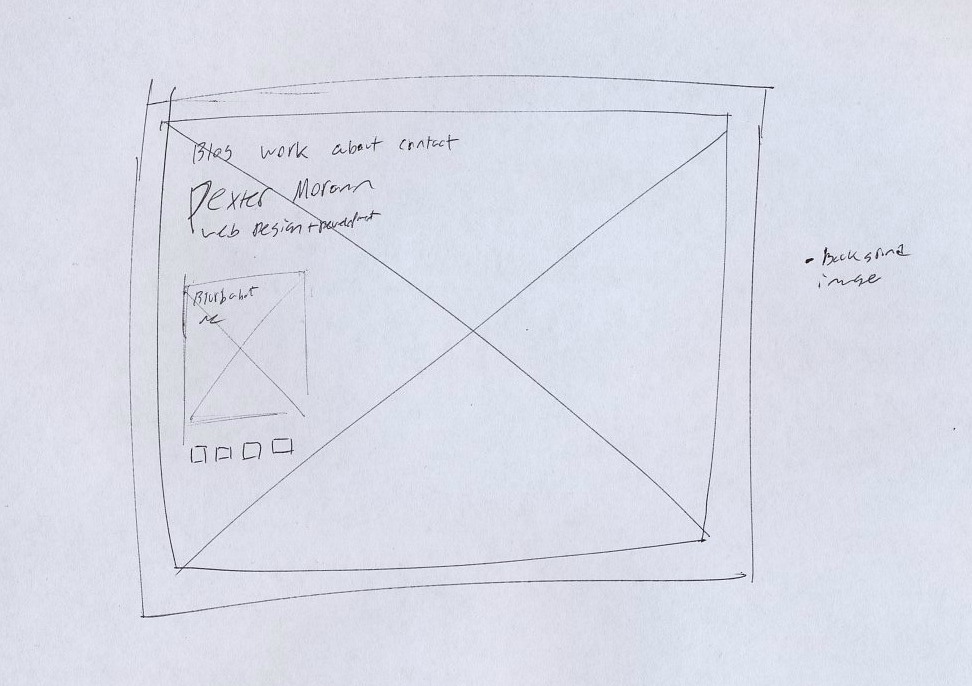 Blog work about contact
Dexter Morann
web Design +
Blurb about
me
• Background
image